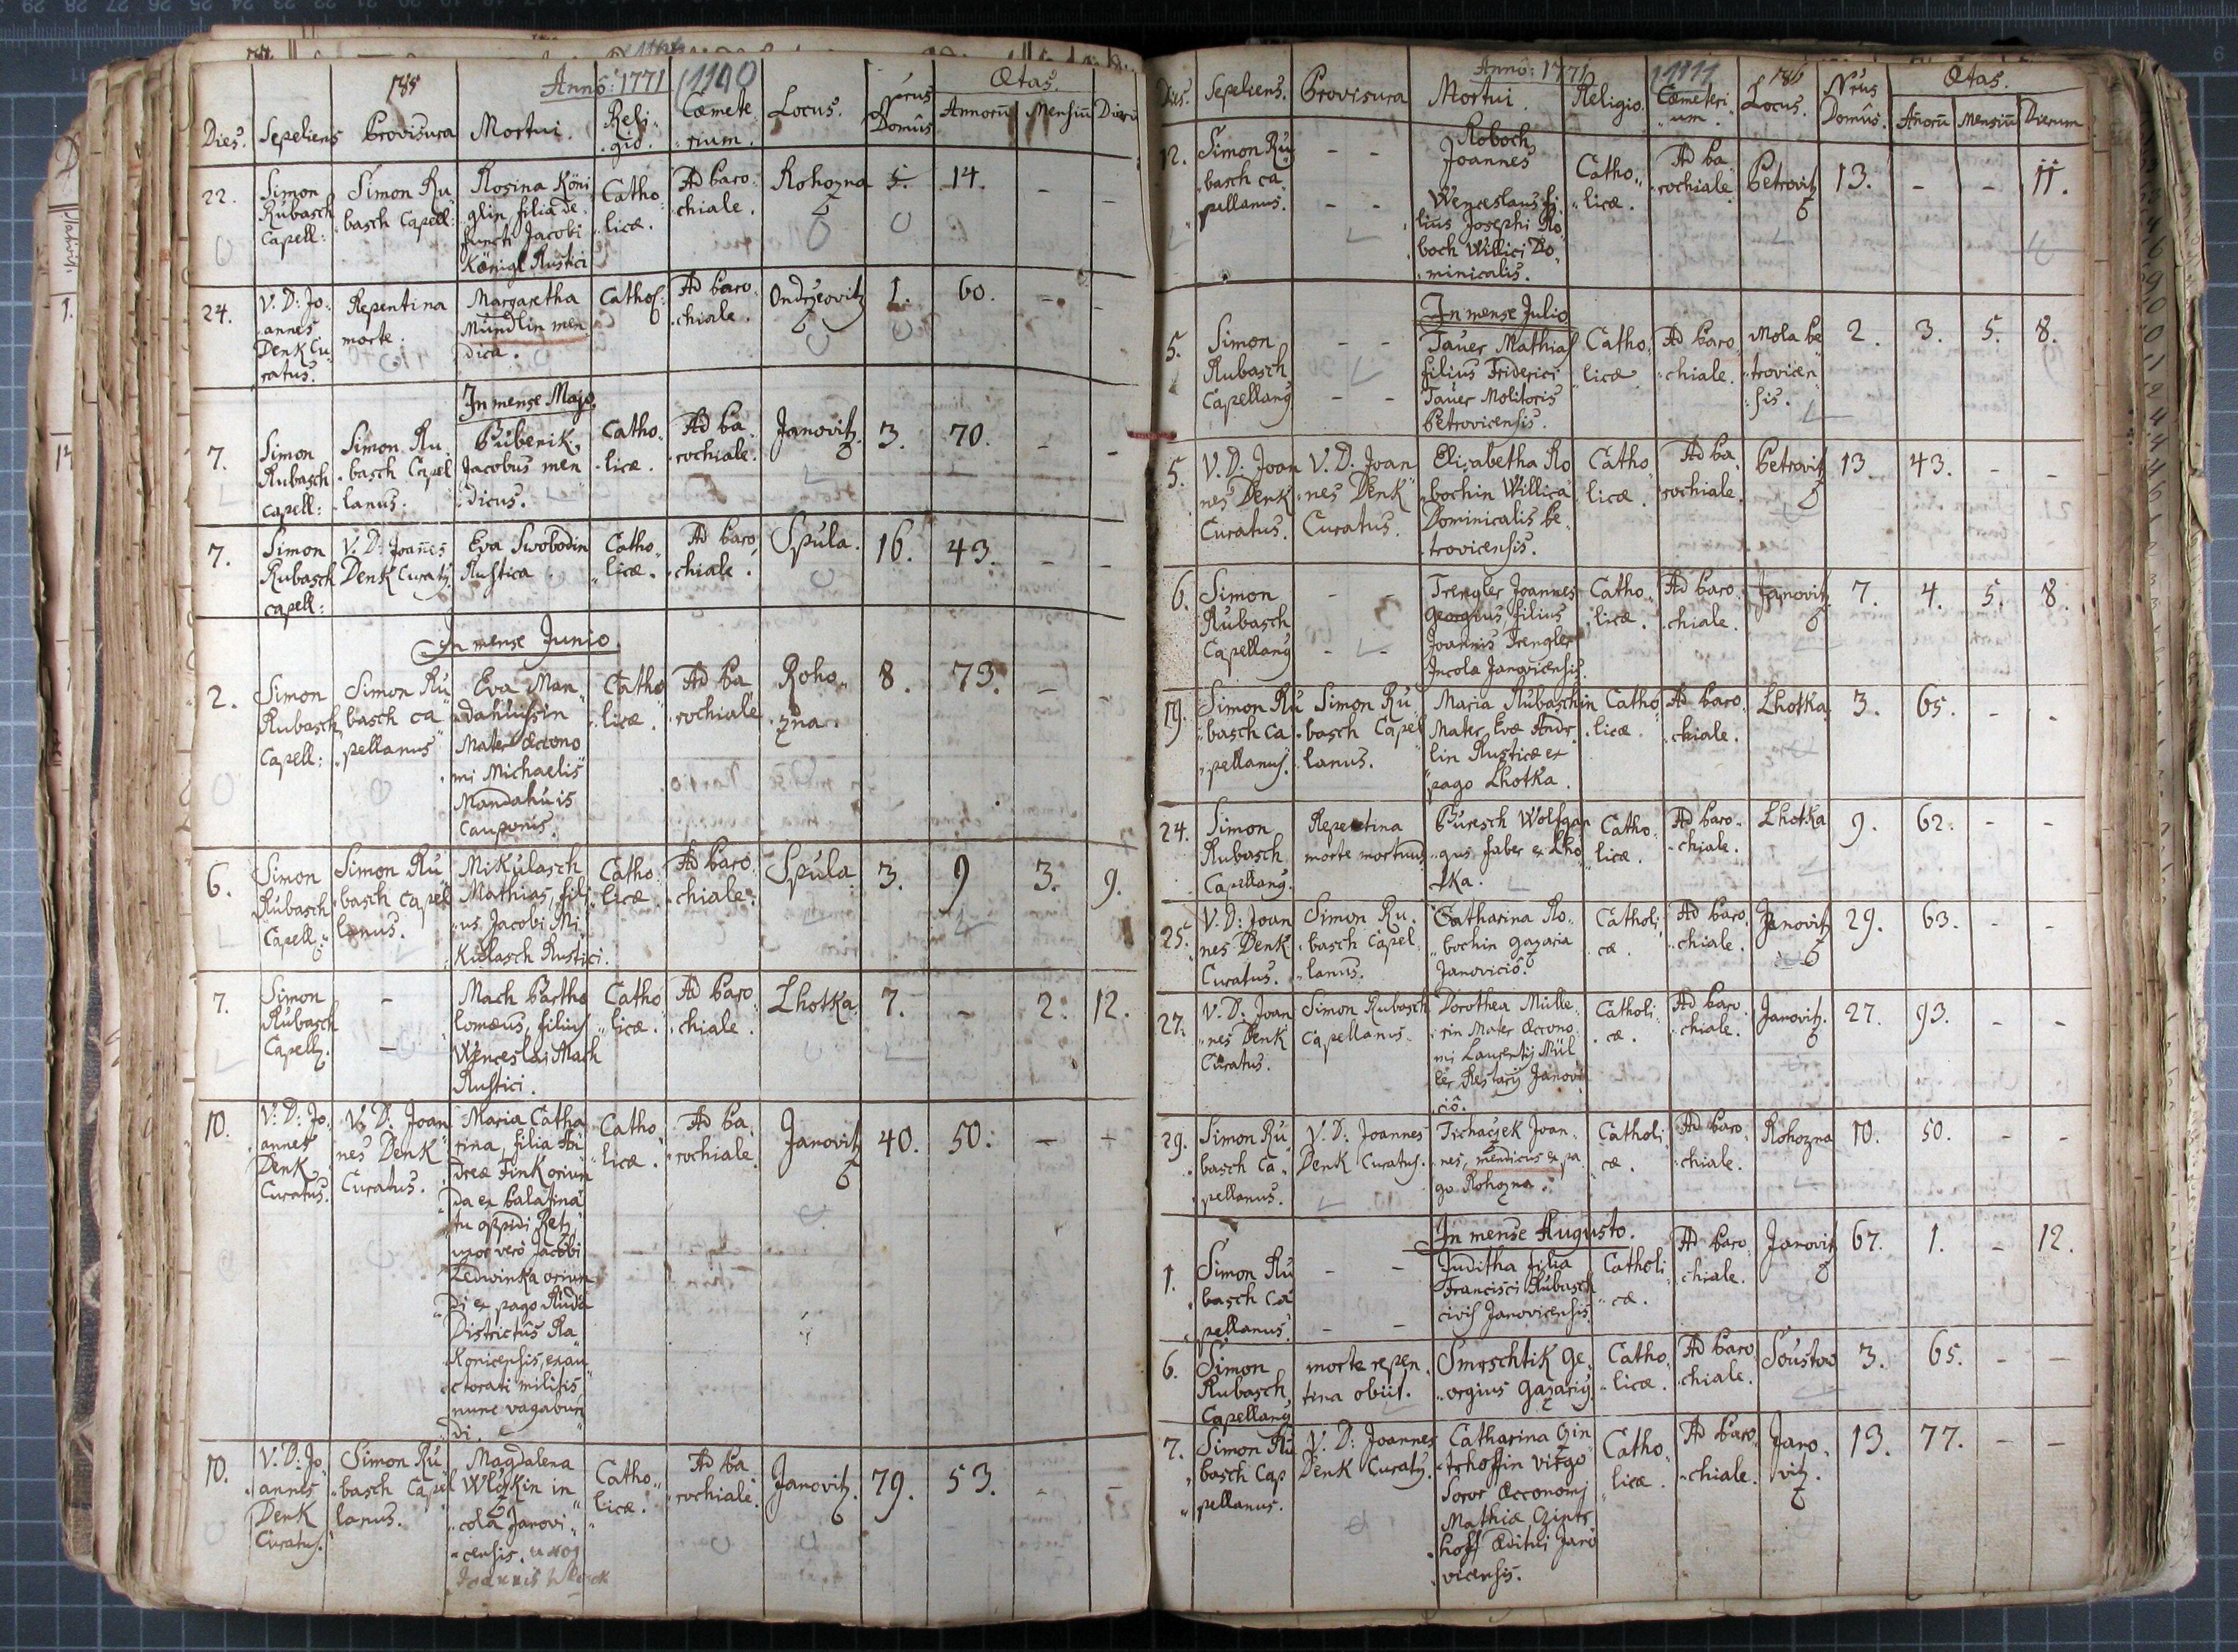 185
Anno: 1771
Dies. Sepeliens Provisura Mortui. Reli„gio. Cœmeterium. Locus. Nrus Domûs Ætas. Annorũ Mensiũ Dierũ
22. Simon Rubasch Capell: Simon Ru„basch Capell: Rosina Köni„glin, filia de„functi Jacobi Königl Rustici Catho„licæ. Ad Paro„chiale. Rohozna 5. 14. - -
24. V. D: Jo„annes Denk Cu„ratus. Repentina morte. Margaretha Mündlin men„dica. Cathol: Ad Paro„chiale. Ondrzeovitz 1. 60. - -
In mense Majo.
7. Simon Rubasch Capell: Simon Ru„basch Capel„lanus. Puberik Jacobus men„dicus. Catho„licæ. Ad Pa„rochiale. Janovitz 3. 70. - -
7. Simon Rubasch capell: V. D: Joañes Denk Curatus. Eva Swobodin Rustica. Catho„licæ. Ad Paro„chiale. Spula. 16. 43. - -
In mense Junio.
2. Simon Rubasch Capell: Simon Ru„basch Ca„pellanus Eva Man„dahuisin Mater Œcono„mi Michaelis Mandahuis Cauponis. Catho„licæ. Ad Pa„rochiale Roho„zna. 8. 73. - -
6. Simon Rubasch Capell: Simon Ru„basch Capel„lanus. Mikulasch Mathias, fili„us Jacobi Mi„kulasch Rustici. Catho„licæ Ad Paro„chiale. Spula 3. 9 3. 9.
7. Simon Rubasch Capell: - - Mach Bartho„lomæus, filius Wenceslai Mach Rustici. Catho„licæ. Ad Paro„chiale. Lhotka. 7. - 2. 12.
10. V. D: Jo„annes Denk Curatus. V. D: Joan„nes Denk Curatus. Maria Catha„rina, filia An„dreæ Fink oriun„da ex Palatina„tu oppidi Retz, uxor verò Jacobi Ledwinka oriun„di ex pago Ruda Districtûs Ra„konicensis, exau„ctorati militis, nunc vagabun„di. Catho„licæ. Ad Pa„rochiale. Janovitz 40. 50. - -
10. V. D: Jo„annes Denk Curatus. Simon Ru„basch Capel„lanus. Magdalena Wlczkin in„cola Janovi„censis. uxor Joannis Wlczek Catho„licæ. Ad Pa„rochiale. Janovitz. 79. 53. - -
Anno: 1771
186
Dies. Sepeliens. Provisura Mortui. Religio. Cœmeteri„um. Locus. Nrus Domûs. Ætas. Añorũ Mensiũ Dierum
12. Simon Ru„basch Ca„pellanus. - - Roboch Joannes Wenceslaus fi„lius Josephi Ro„boch Willici Do„minicalis. Catho„licæ. Ad Pa„rochiale Petrovitz 13. - - 11.
In mense Julio
5. Simon Rubasch Capellanus - - Tauer Mathias filius Friderici Tauer Molitoris Petrovicensis. Catho„licæ Ad Paro„chiale. Mola Pe„trovicen„sis. 2. 3. 5. 8.
5. V. D. Joan„nes Denk Curatus. V. D. Joan„nes Denk Curatus. Elisabetha Ro„bochin Willica Dominicalis Pe„trovicensis. Catho„licæ Ad Pa„rochiale. Petrovitz 13 43. - -
6. Simon Rubasch Capellanus - - Trengler Joannes Georgius filius Joannis Trengler Incola Janovicensis. Catho„licæ. Ad Paro„chiale. Janovitz 7. 4. 5. 8.
19. Simon Ru„basch Ca„pellanus. Simon Ru„basch Capel„lanus. Maria Rubaschin Mater Evæ Andr„lin Rusticæ ex pago Lhotka. Catho„licæ. Ad Paro„chiale. Lhotka. 3. 65. - -
24. Simon Rubasch Capellanus. Repentina morte mortuus. Buresch Wolfgan„gus faber ex Lho„tka. Catho„licæ. Ad Paro„chiale. Lhotka 9. 62. - -
25. V. D: Joan„nes Denk Curatus. Simon Ru„basch Capel„lanus. Catharina Ro„bochin gazaria Janovicio. Catholi„cæ. Ad Paro„chiale. Janovitz 29. 63. - -
27. V. D. Joan„nes Denk Curatus. Simon Rubasch Capellanus. Dorothea Mülle„rin Mater Œcono„mi Laurentij Mül„ler Restarij Janovi„ciô. Catholi„cæ. Ad Paro„chiale. Janovitz. 27. 93. - -
29. Simon Ru„basch Ca„pellanus. V. D: Joannes Denk Curatus. Tichaczek Joan„nes, mendicus ex pa„go Rohozna. Catholi„cæ. Ad Paro„chiale. Rohozna 10. 50. - -
In mense Augusto.
1. Simon Ru„basch Ca„pellanus. - - Juditha filia Francisci Rubasch civis Janovicensis. Catholi„cæ. Ad Paro„chiale. Janovitz 67. 1. - 12.
6. Simon Rubasch Capellanus morte repen„tina obiit. Smrschtik Ge„orgius gazarius Catho„licæ. Ad Paro„chiale. Soustow 3. 65. - -
7. Simon Ru„basch Cap„pellanus. V. D: Joannes Denk Curatus. Catharina Gin„trhoffin virgo Soror Œconomi Mathiæ Gintr„hoff Æditui Jano„vicensis. Catho„licæ. Ad Paro„chiale. Jano„vitz. 13. 77. - -